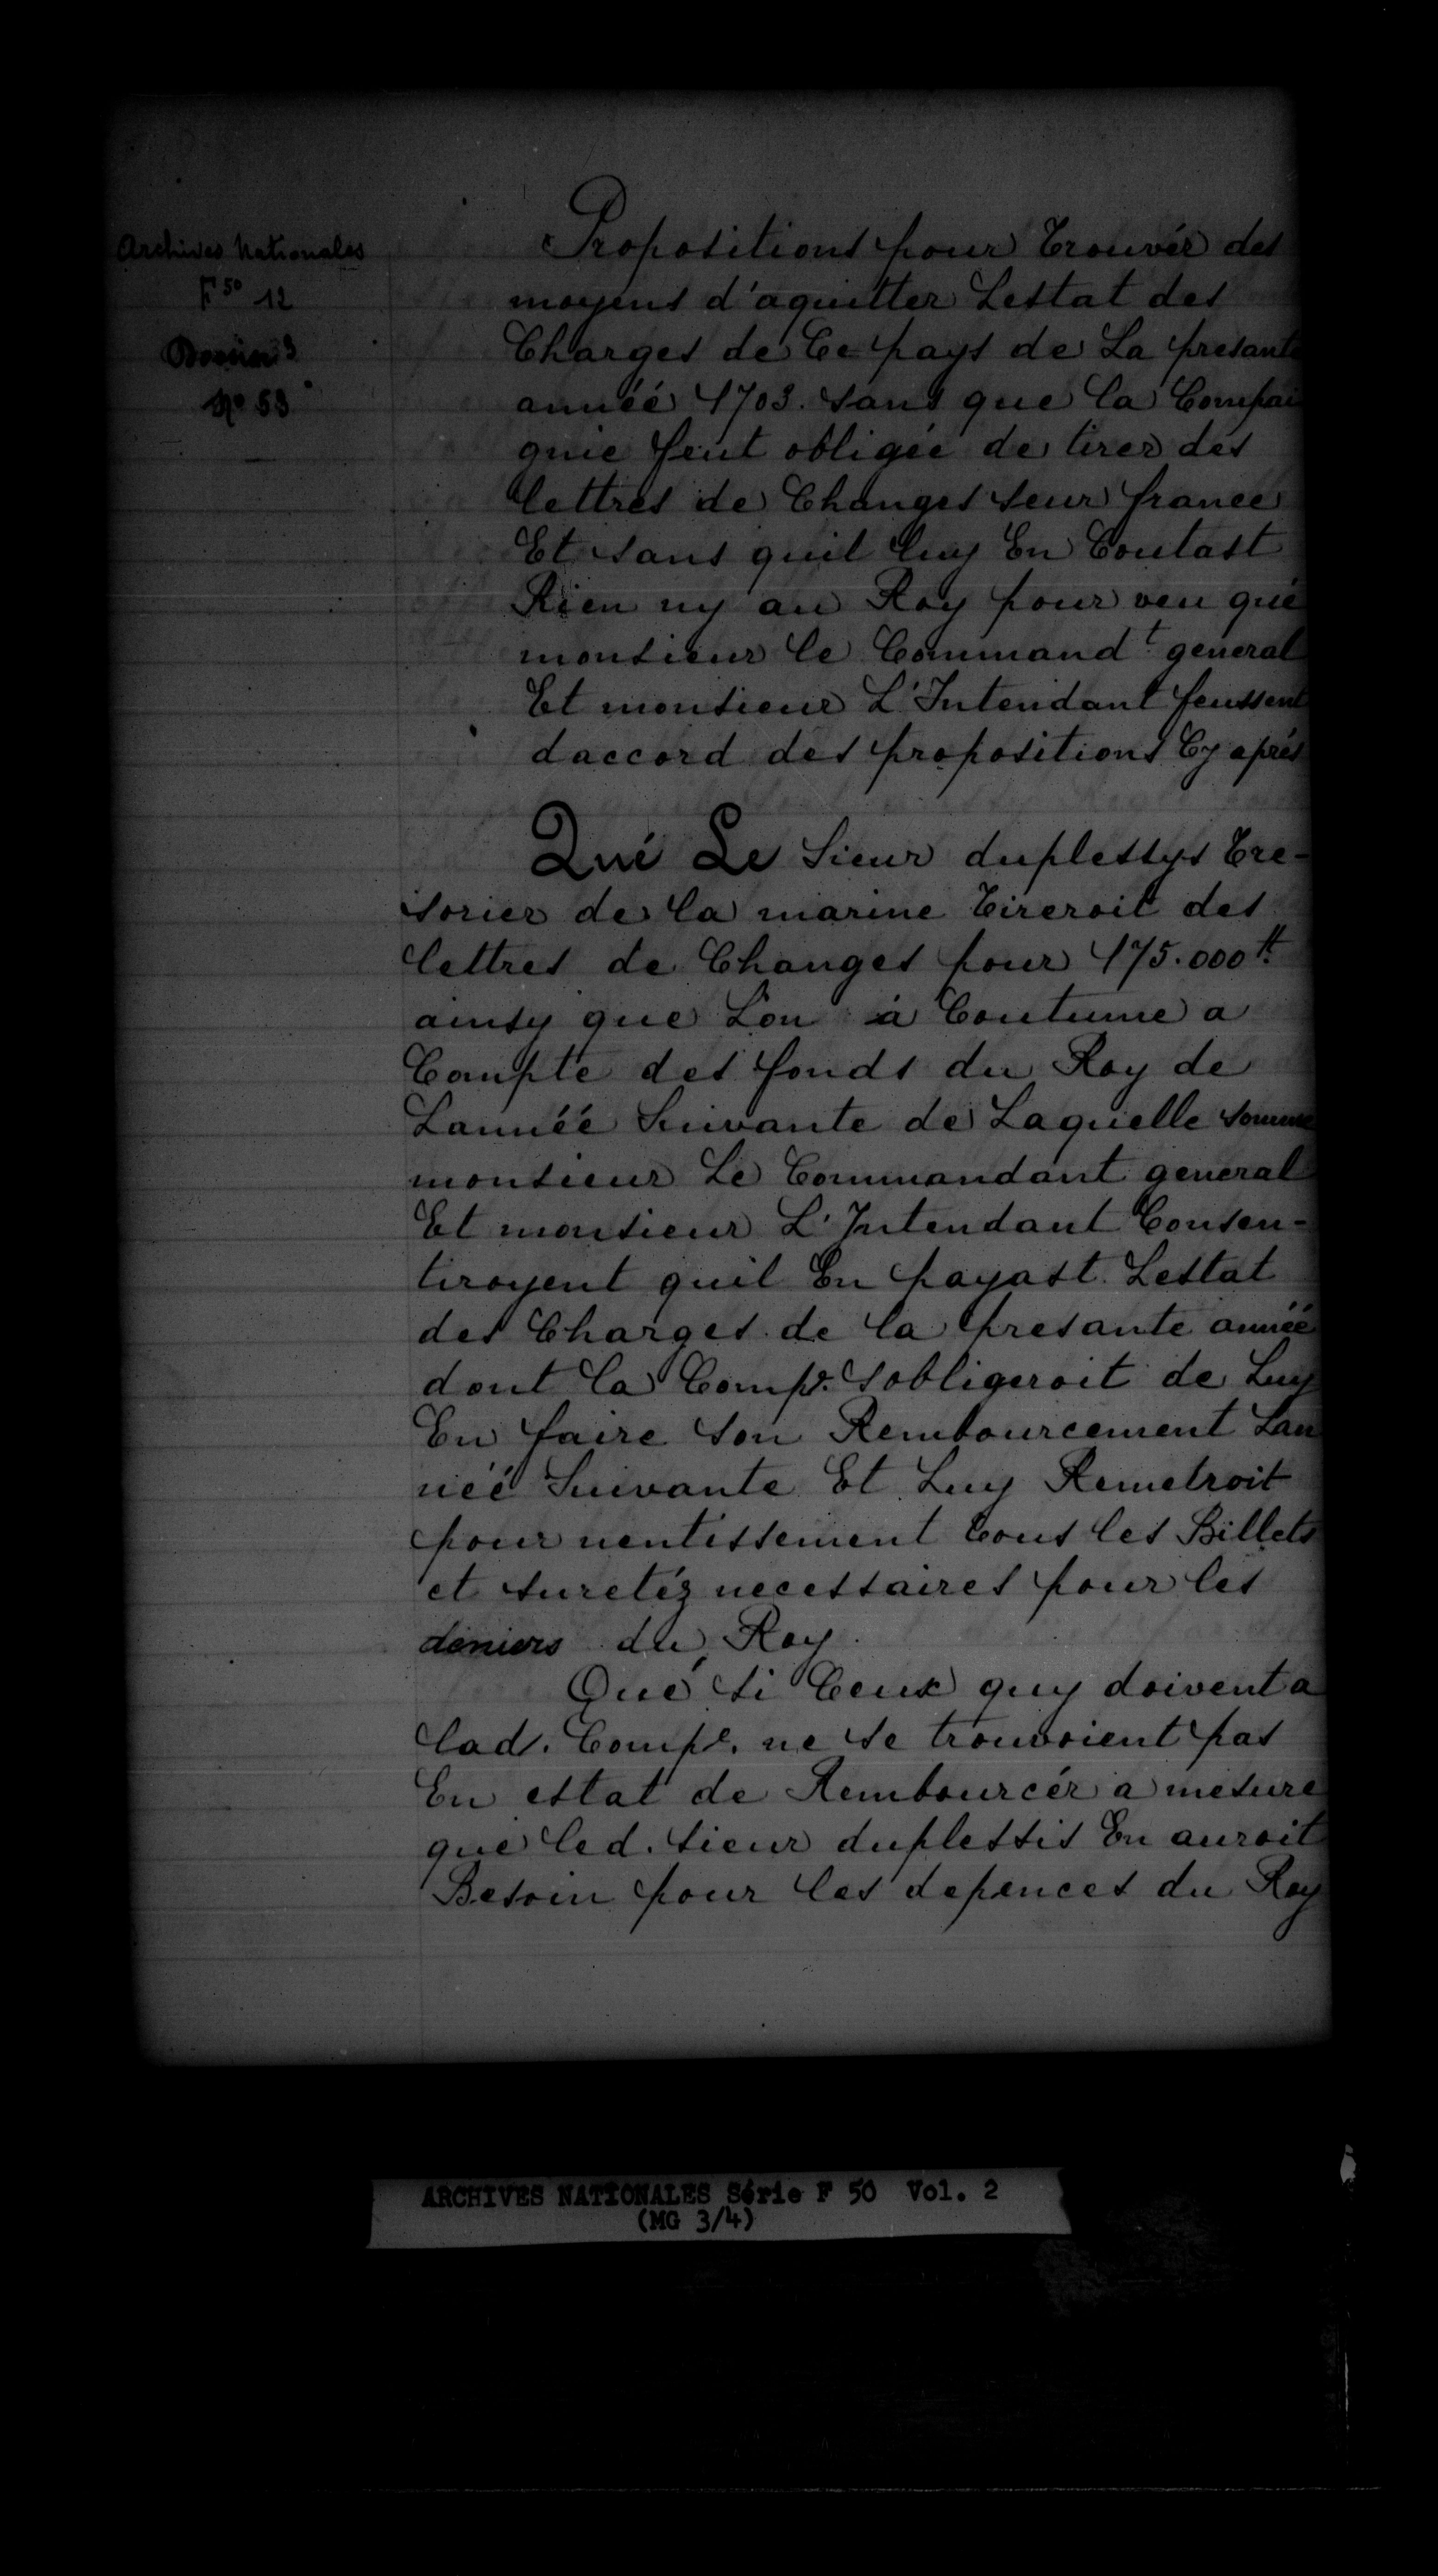 Archives Nationales
F 50 12
Dossier 3
No 53
Propositions pour Trouvér des
moyens d'aquitter Lestat des
Charges de Ce pays de La presante
annéé 1703. sans que la Compai
gnie feut obligée de tirer des
lettres de Changes seur france
Et sans quil luy En Coutast
Rien ny au Roy pour veu qué
monsieur le Commandt general
Et monsieur L'Intendant feussent
daccord des propositions Cy aprés
Qué Le Sieur duplessys Tre-
sorier de la marine Tireroit des
lettres de Changes pour 175.000tt
ainsy que Lon à Coutume a
Compte des fonds du Roy de
Lannéé Suivante de Laquelle somme
monsieur Le Commandant general
Et monsieur L'Intendant Consen-
tiroyent quil En payast Lestat
des Charges de la presante annéé
dont la Compe. sobligeroit de Luy
En faire son Rembourcement Lan
néé Suivante Et Luy Remetroit
pour nentissement tous les Billets
et suretéz necessaires pour les
deniers du Roy.
Qué si Ceux quy doivent a
lad. Compe. ne se trouvoient pas
En estat de Rembourcér a mesure
que led. sieur duplessis En auroit
Besoin pour les depences du Roy
ARCHIVES NATIONALES Série F 50 Vol. 2
(MG 3/4)